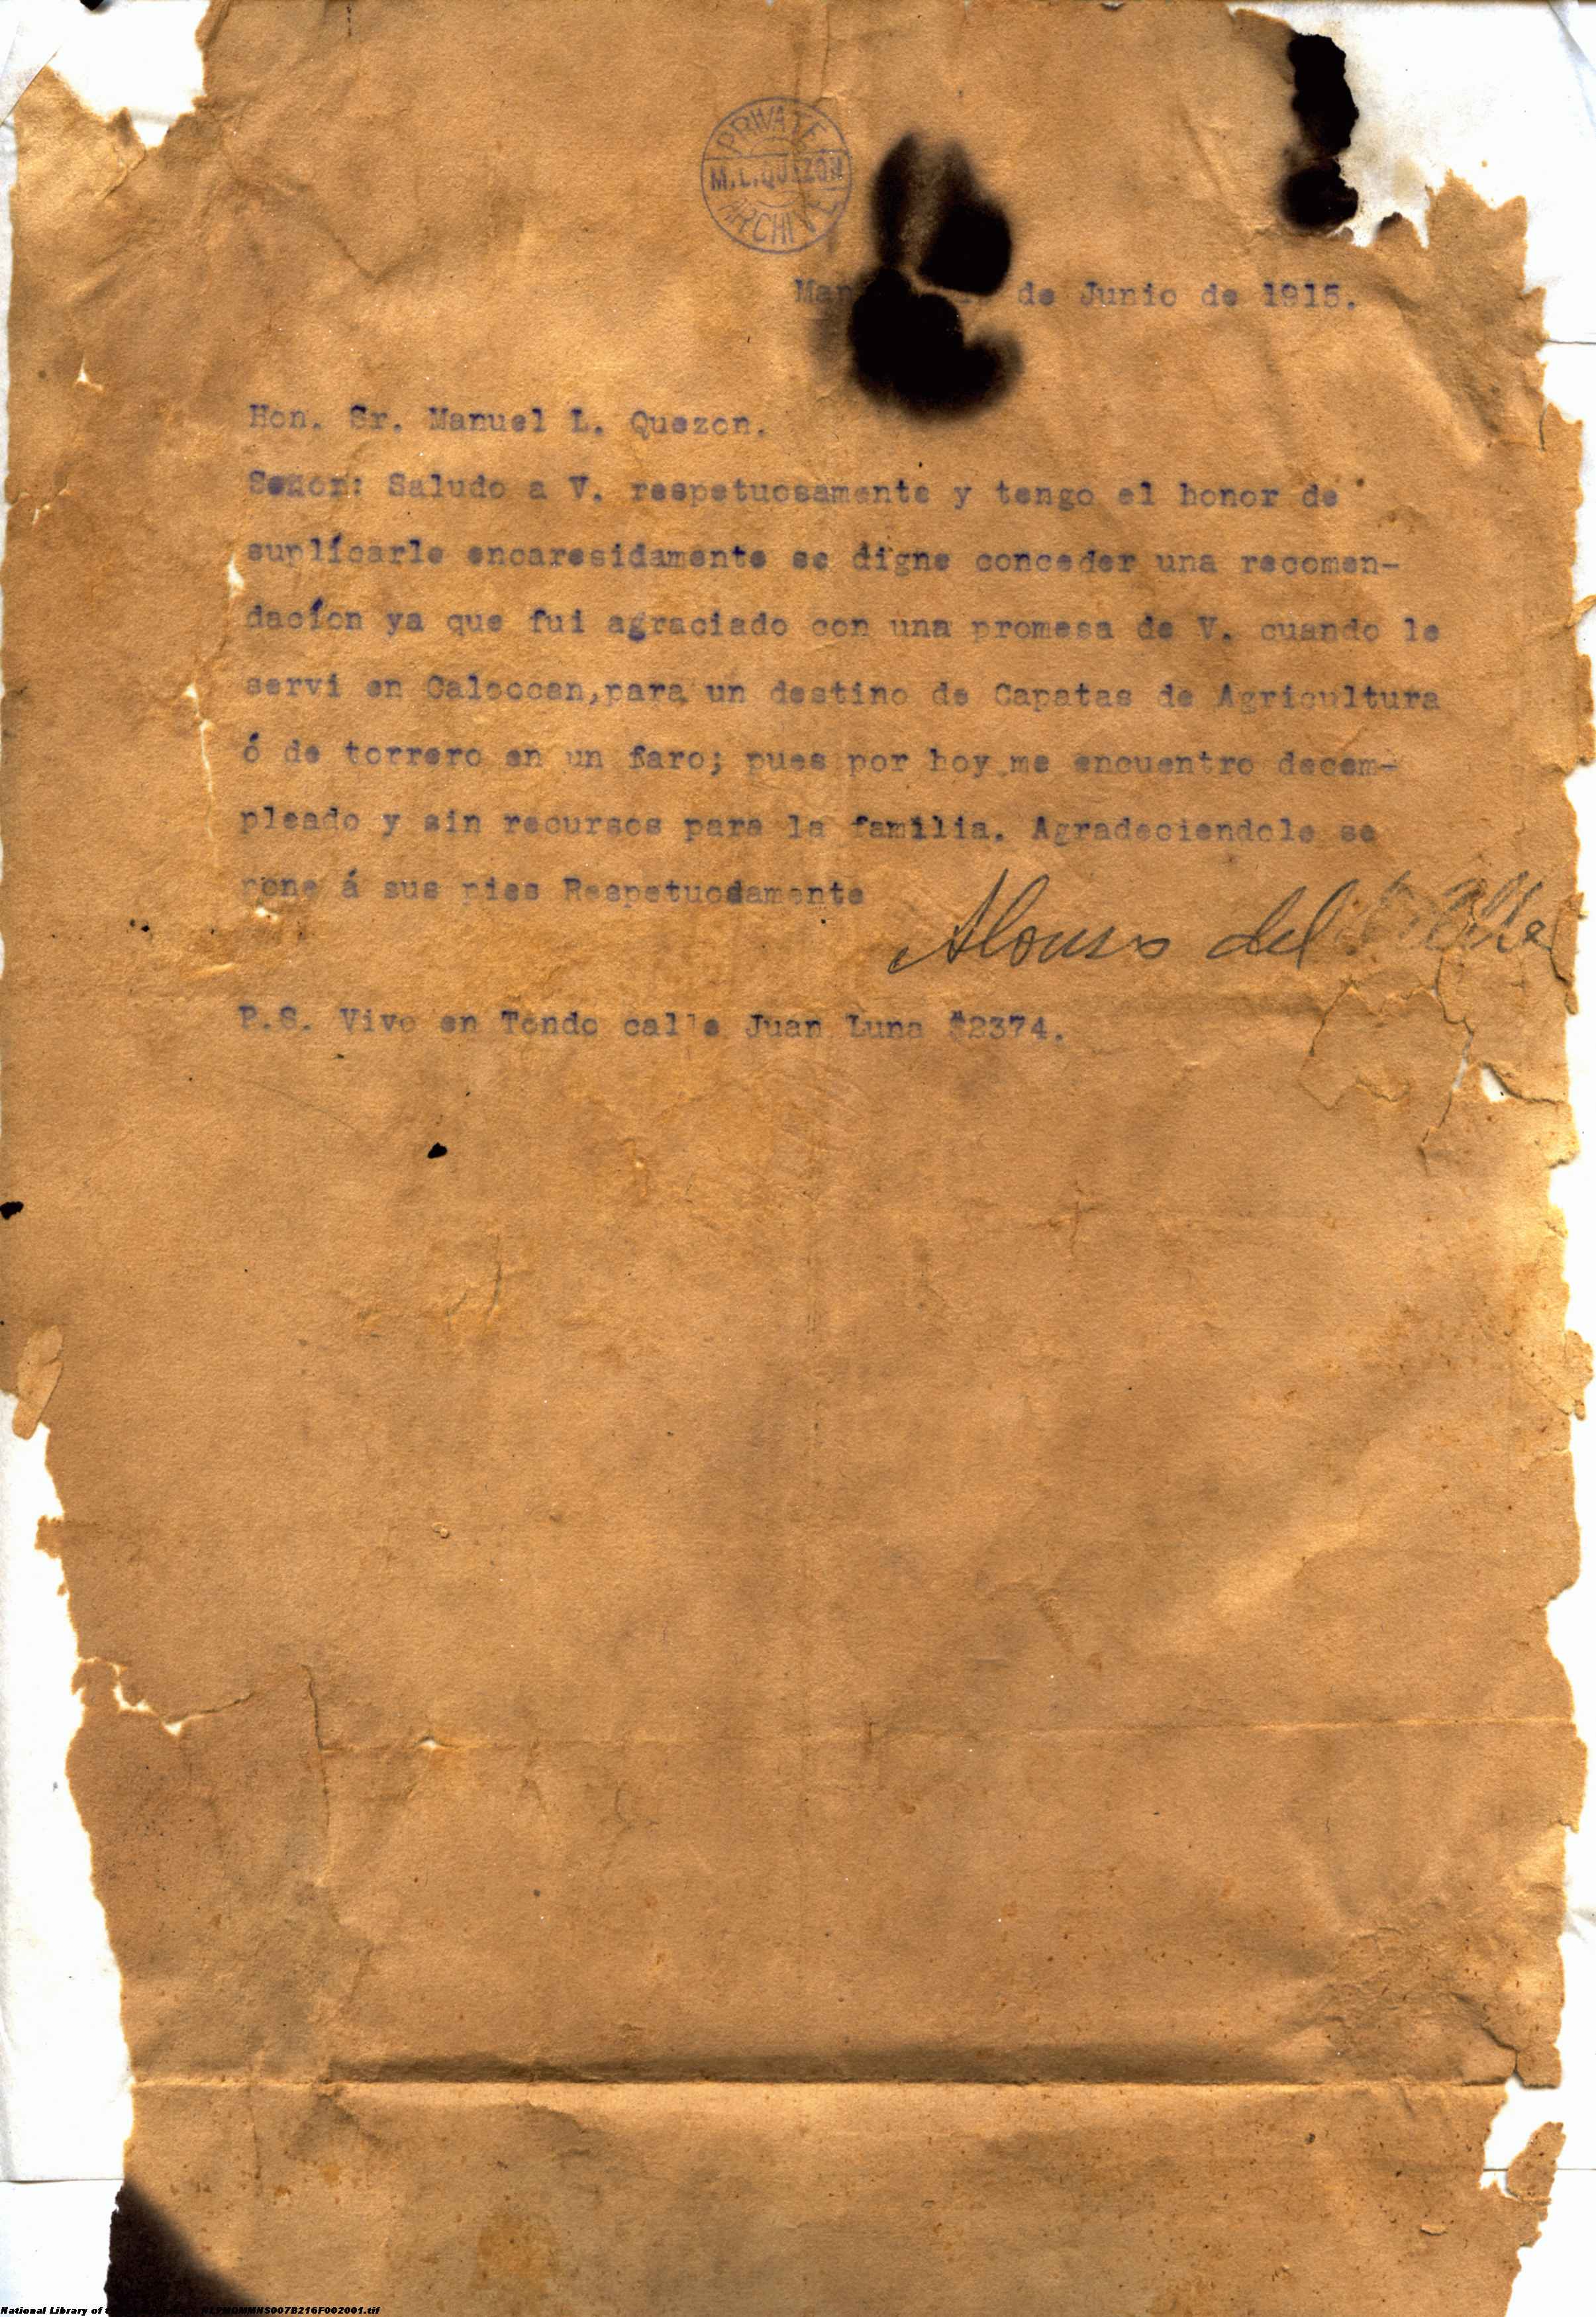 PRIVATE
M.L.QUEZON
ARCHIVE
de Junio de 1915.
Hon. Sr. Manuel L. Quezon.
Señor: Saludo a V. respetuosamente y tengo el honor de
suplícarle encaresidamente se digne conceder una recomen-
dacíon ya que fui agraciado con una promesa de V. cuando le
serví en Caloocan,para un destino de Capatas de Agricultura
ó de torrero en un faro; pues por hoy me encuentro decem-
pleado y sin recursos para la familia. Agradeciendole se
pone á sus pies Respetuosamente
Alonso del Valle
P.S. Vivo en Tondo calle Juan Luna #2374.
National Library of